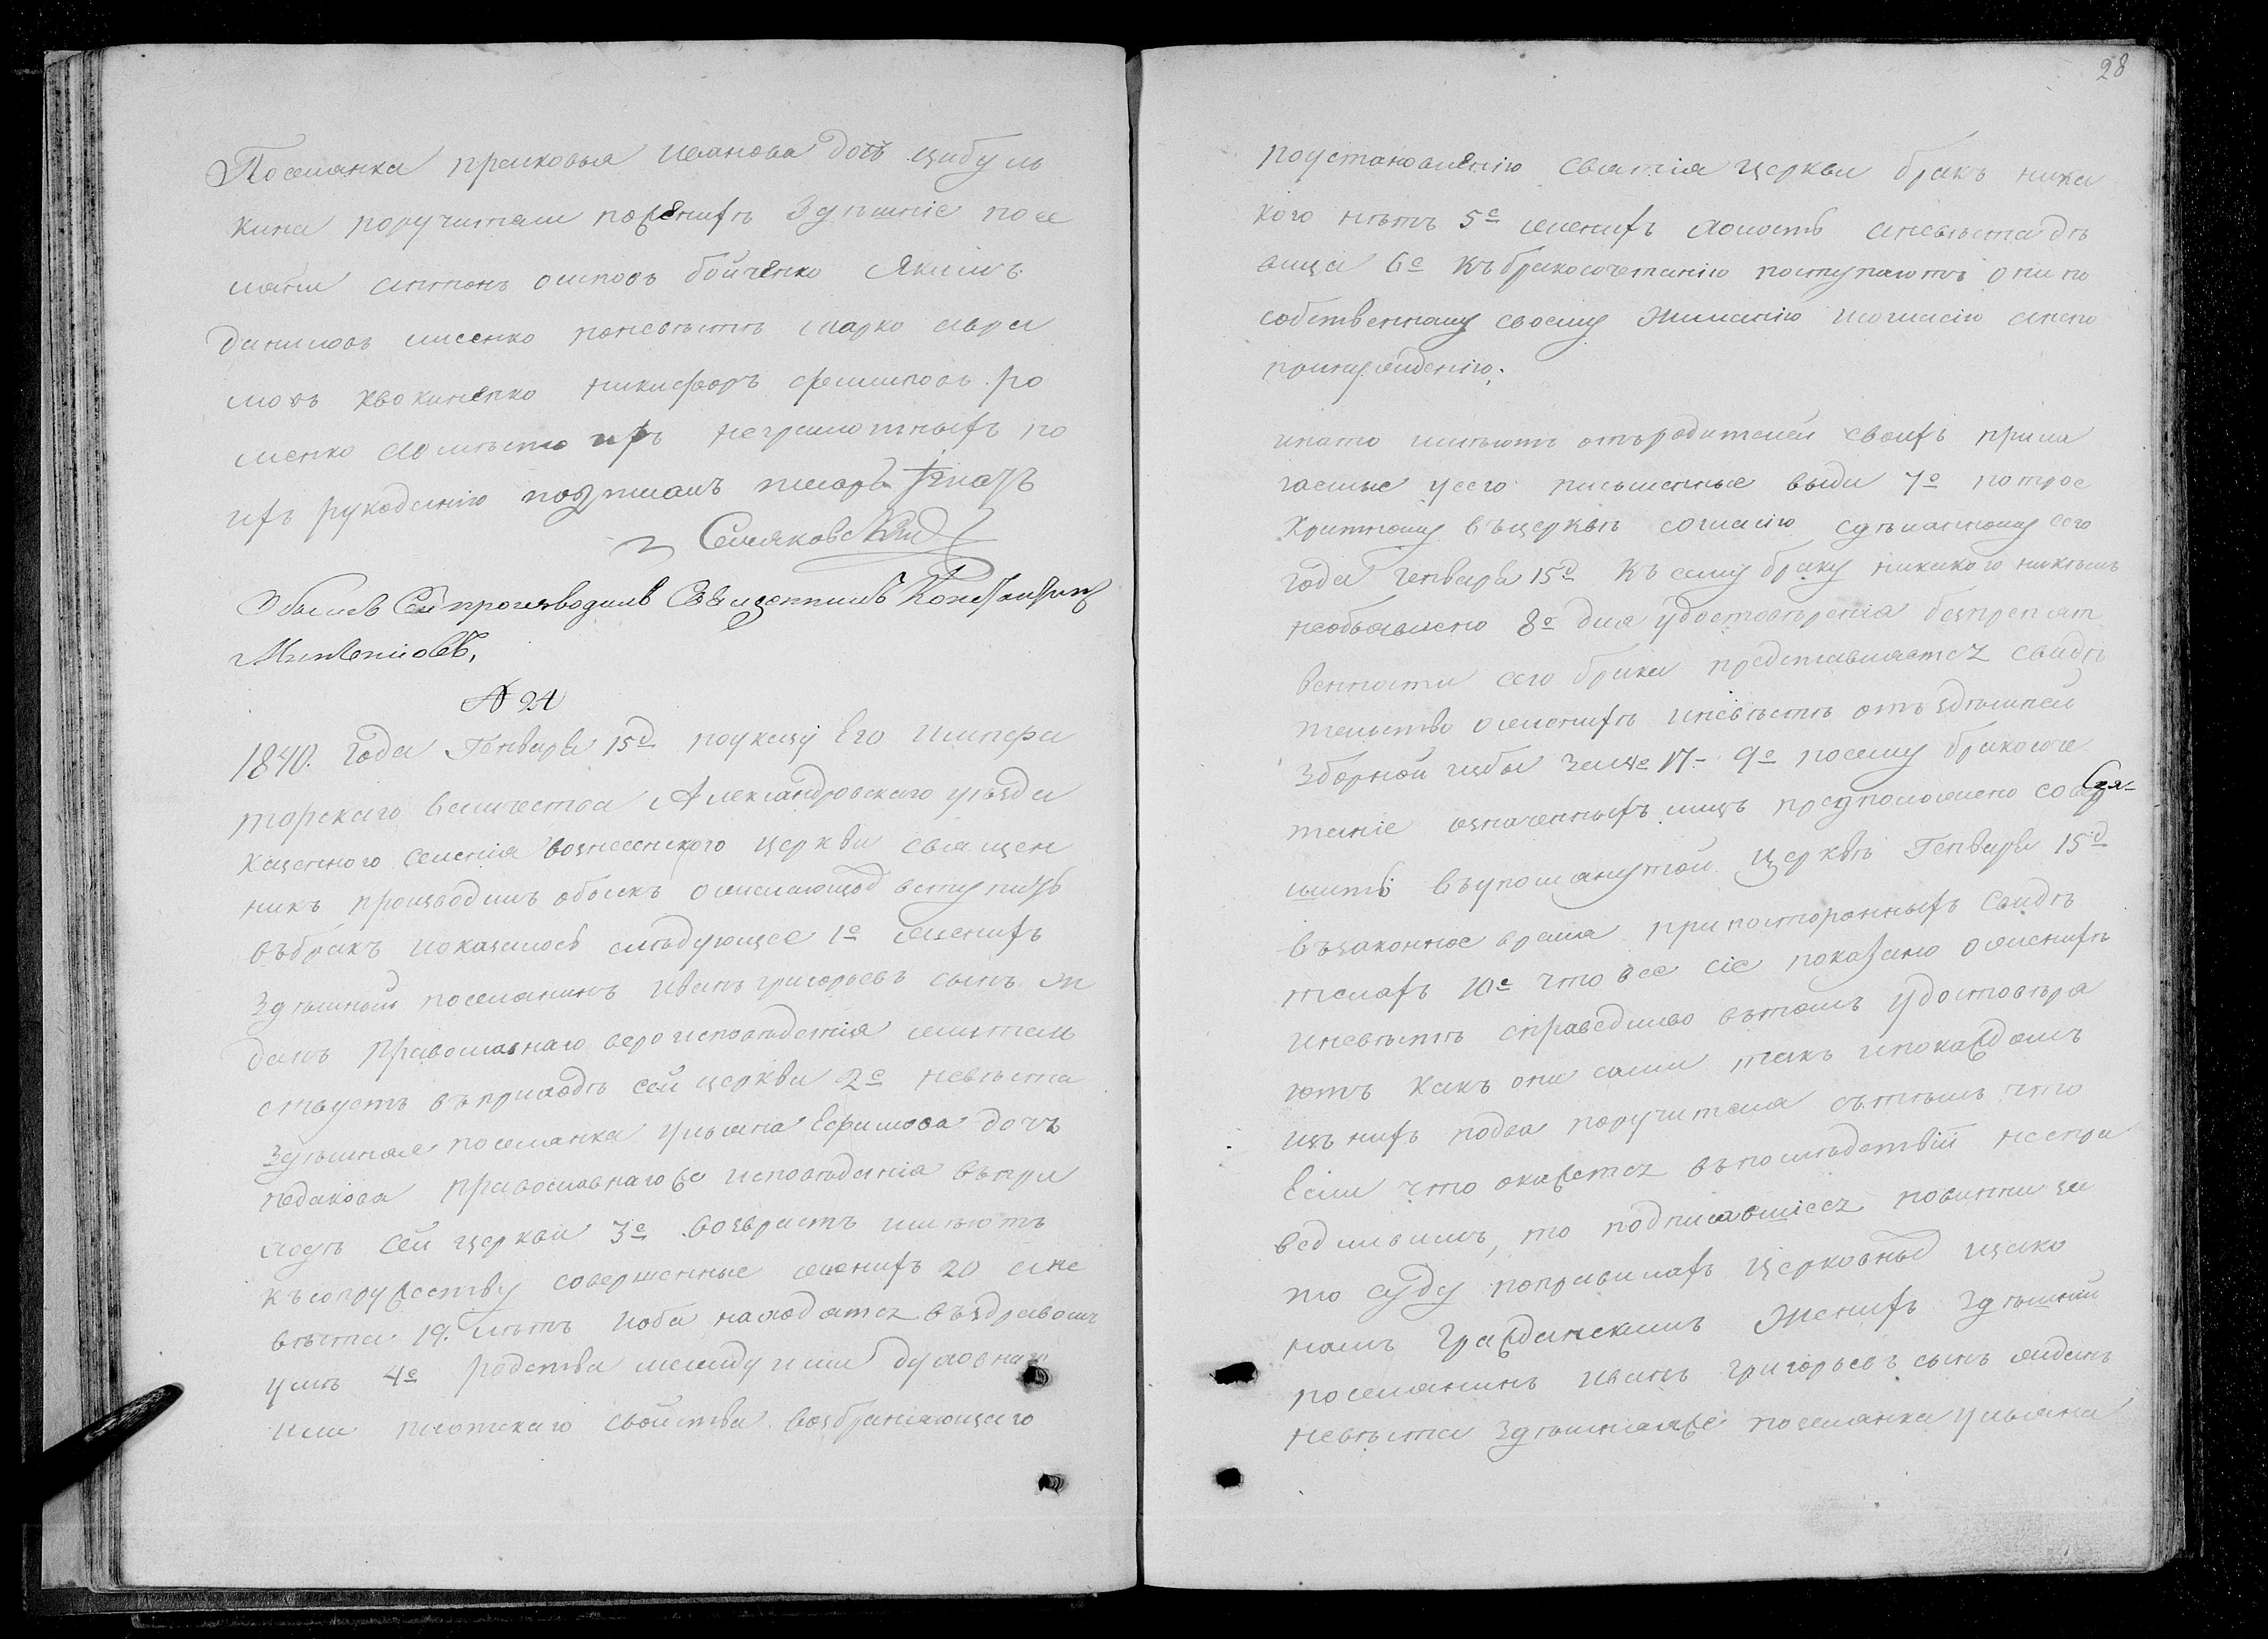 Поселянка прасковья иванова дочь цибуль
кина поручители поженихъ здѣшніе посе
ляни антонъ осиповъ бойченко Якимъ
даниловъ лисенко поневѣстѣ марко авра
мовъ квокиненко никифоръ филиповъ ро
менко авмѣсто ихъ неграмотныхъ по
ихъ рукоданію подписалъ писарь Игнатъ
Семяковскій
Обыскъ Сей производилъ Священникъ Константинъ
№ 24
1840. года Генваря 15д поуказу Его импера
торскаго величества Александровскаго уѣзда
казенного селенія вознесенского церкви священ
никъ производилъ обыскъ ожелающихъ вступить
въбракъ иоказалось слѣдующее 1е женихъ
Здѣшный поселянинъ иванъ григорьевъ сынъ ж
данъ православнаго вероисповѣданія жител
ствуетъ въприходѣ сей церкви 2е невѣста
Здѣшная поселянка ульяна Ефимова дочъ
педакова православнагоже исповѣданія въпри
ходѣ сей церкви 3е возврастъ имѣютъ
къ супружеству совершенные женихъ 20 ане
вѣста 19. лѣтъ иоба находятся въздравомъ
умѣ 4е родства между ими духовнаго
или плотскаго свойства возбраняющаго
28
поустановленію святія церкви бракъ ника
кого нѣтъ 5е женихъ холостъ аневѣста дѣ
вица 6е къбракосочетанію поступаютъ они по
собственному своему желанію исогласію анепо
принужденію.
инато имѣютъ отъродителей своихъ прила
гаемые усего писменные виды 7е потрое
кратному въцерквѣ согласію сдѣланному сего
года генваря 15д къ сему браку никакого никѣмъ
необъявлено 8е для удостовѣренія безпрепят
венности сего брака представляется свидѣ
тельство оженихѣ иневѣстѣ отъ здѣшней
Зборной избы 17 9е посему бракосоче
таніе означенныхъ лицъ предположено совер
шить въупомянутой церквѣ Генваря 15д
въ законное время припосторонныхъ свидѣ
теляхъ 10е что все сіе показано оженихѣ
иневѣстѣ справедливо вътомъ удостовѣра
ютъ какъ они сами такъ ипокаждомъ
изъ нихъ подва поручителя сътѣмъ что
Если что окажется въпослѣдствіи неспра
ведливымъ, то подписавшіеся повинни за
то суду поправилахъ церковныхъ изако
намъ гражданскимъ Женихъ здѣшній
поселянинъ иванъ григорьевъ сынъ жданъ
невѣста здѣшнаяже поселянка ульяна